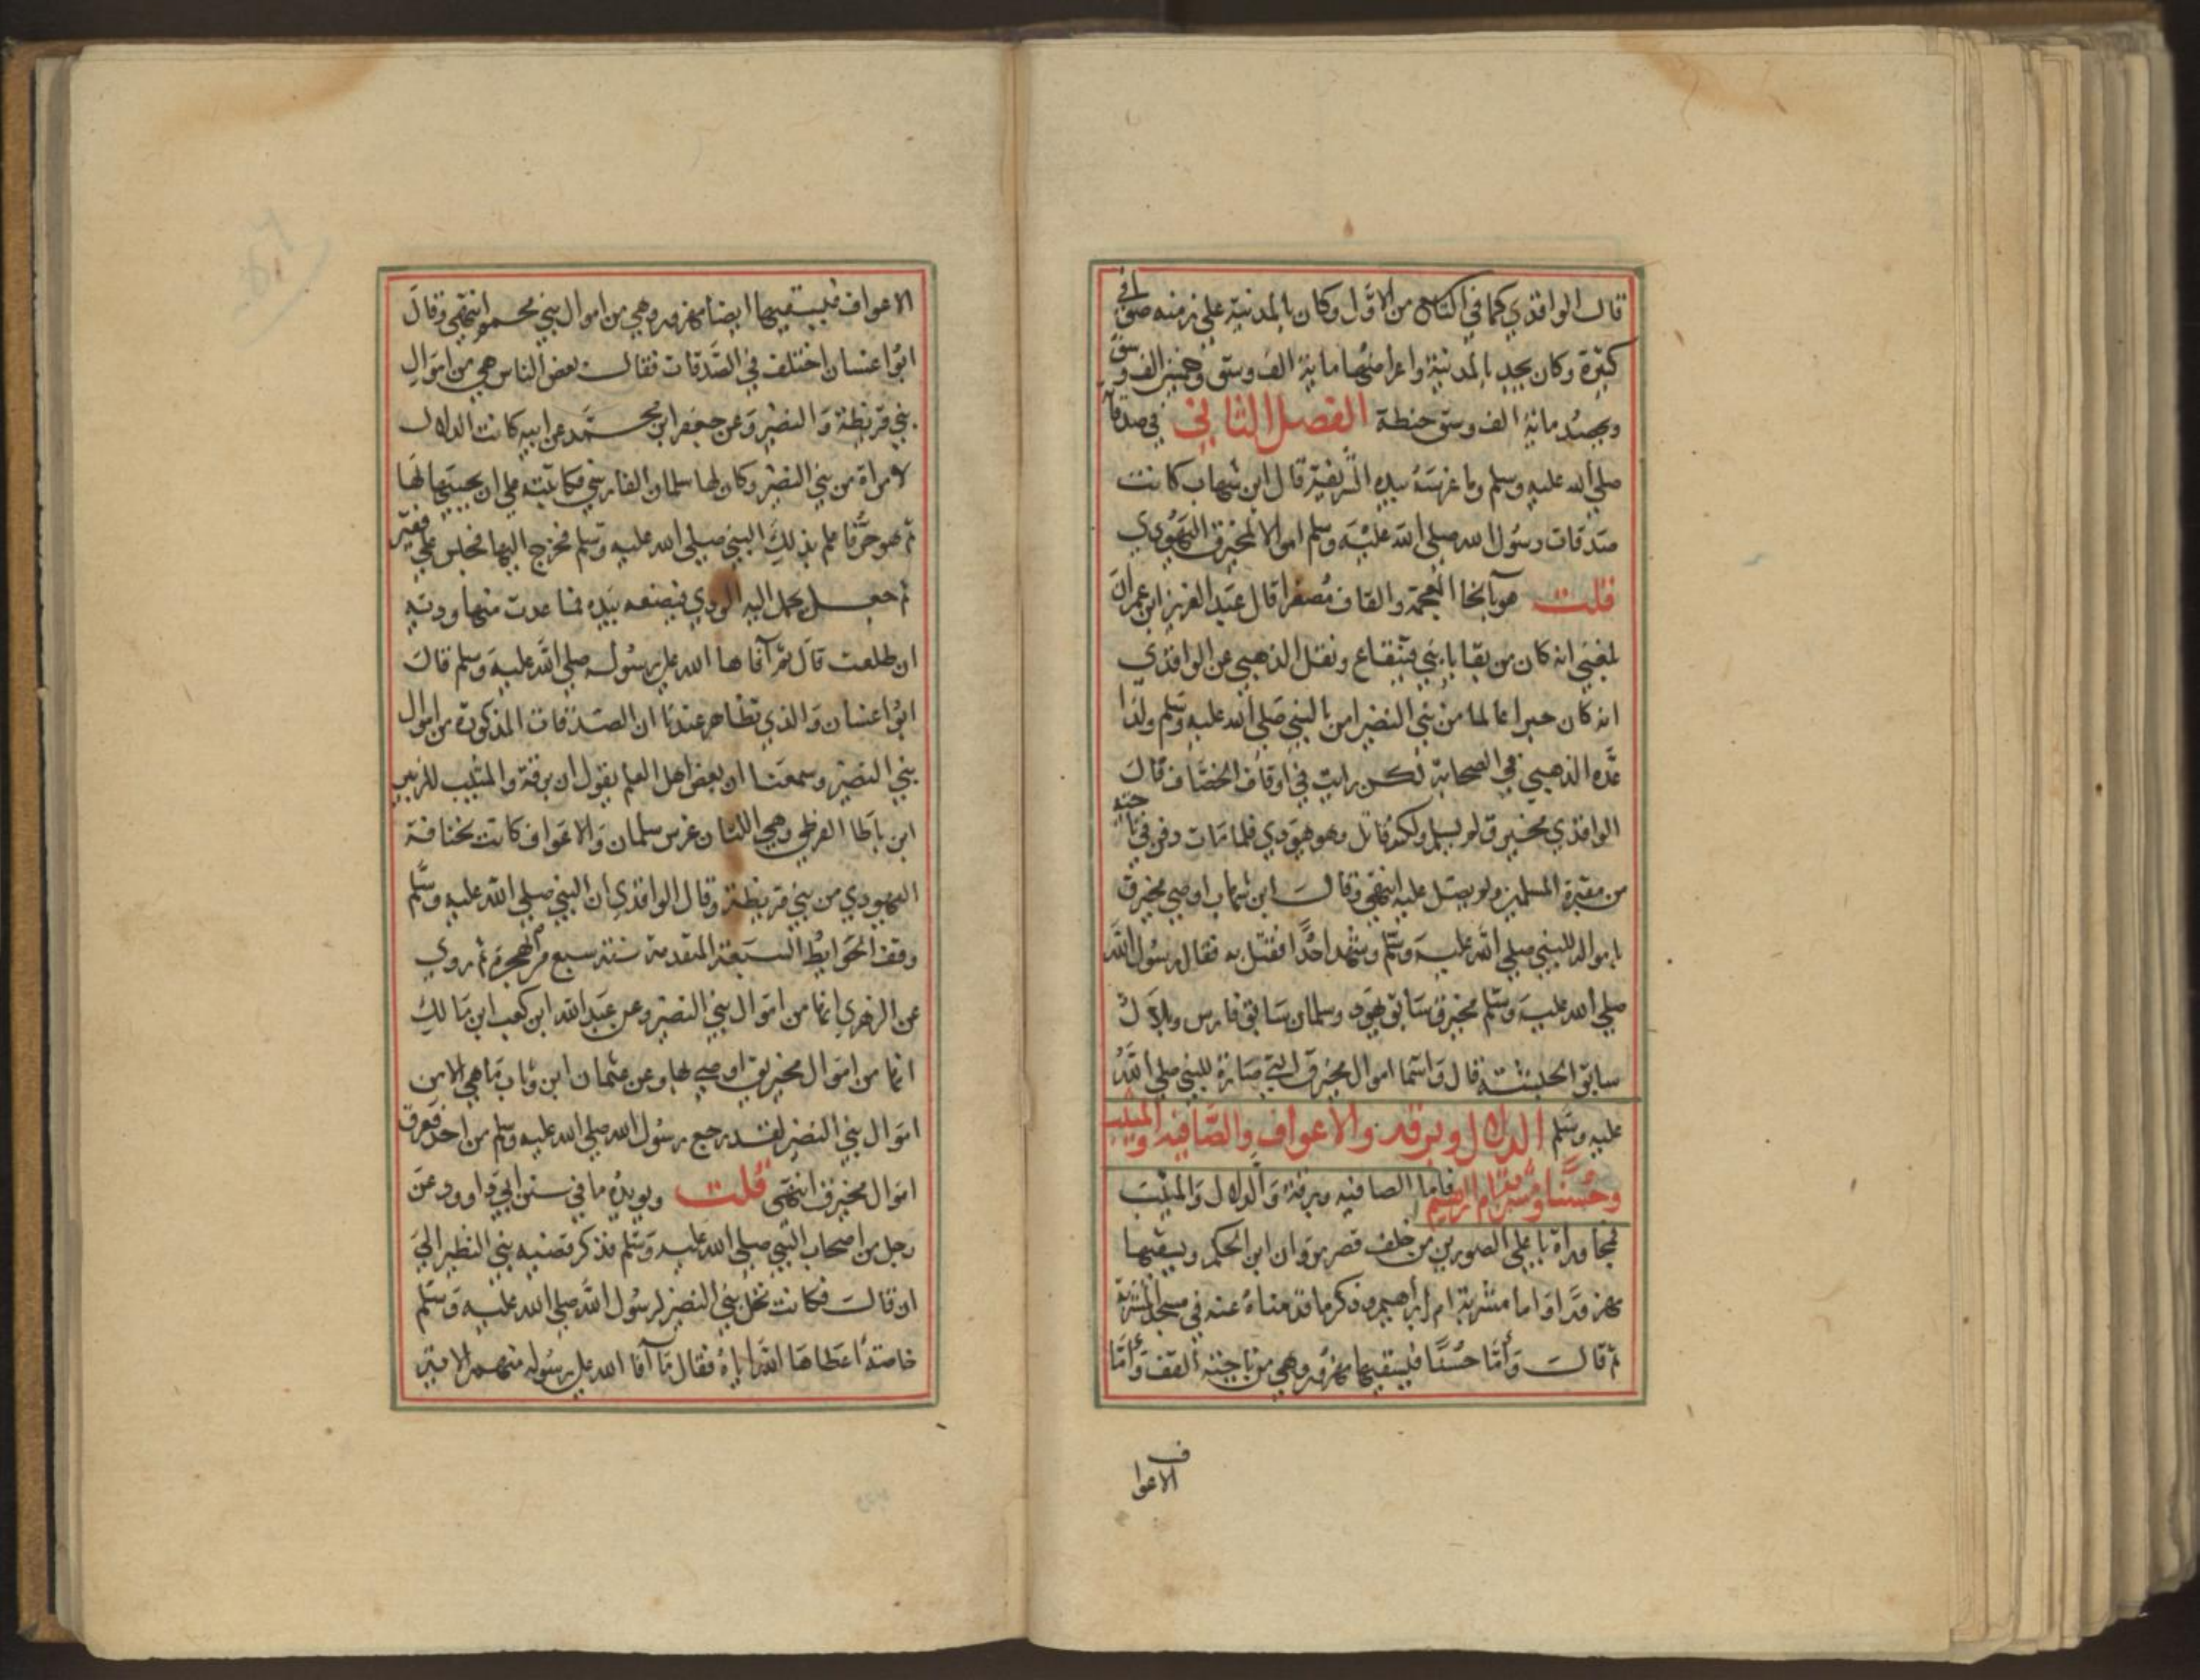 قال الواقدي كما في الكتاب من الاول وكان بالمدينة على زمنه صوافي
كثيرة وكان يجد بالمدينة واعراضها ماية الف وسق وخمسين الف وسق
ويحصد ماية الف وسق حنطة الفصل الثاني في صدقاته
صلى الله عليه وسلم وما غرسه بيده الشريفة قال ابن شهاب كانت
صدقات رسول الله صلى الله عليه وسلم اموالا لمخيرق اليهودي
قلت هو بالخا المعجمة والقاف مصغرا قال عبد العزيز ابن عمران
بلغني انه كان من بقايا بني قينقاع ونقل الذهبي عن الواقدي
انه كان حبرا عالما من بني النضير امن بالنبي صلى الله عليه وسلم ولذا
عده الذهبي في الصحابة لكن رايت في اوقاف الخصاف قال
الواقدي مخيرق لم يسلم ولكنه قاتل وهو يهودي فلما مات دفن في ناحية
من مقبرة المسلمين ولم يصل عليه انتهى وقال ابن شهاب اوصى مخيرق
بامواله للنبي صلى الله عليه وسلم وشهد احدا فقتل به فقال رسول الله
صلى الله عليه وسلم مخيرق سابق يهود وسلمان سابق فارس وبلال
سابق الحبشة قال واسما اموال مخيرق التي صارة للنبي صلى الله
عليه وسلم الدلال وبرقه والاعواف والصافيه والميثب
وحسنا ومشربة ام ابراهيم فاما الصافيه وبرقة والدلال والميثب
فمجاوراة باعلى الصورين من خلف قصر مروان ابن الحكم ويسقيها
مهزور واما مشربة ام ابراهيم وذكر ما قدمناه عنه في مسجد المشربة
ثم قال واما حسنا فيسقيها مهزور وهي من ناحية القف واما
الاعواف
الاعواف فيسقيها ايضا مهزور وهي من اموال بني محمم انتهى وقال
ابوا غسان اختلف في الصدقات فقال بعض الناس هي من اموال
بني قريظة والنضير وعن جعفر ابن محمد عن ابيه كانت الدلال
لامراة من بني النضير وكان لها سلمان الفارسي فكاتبته على ان يحييها لها
ثم هو حر فاعلم بذلك النبي صلى الله عليه وسلم فخرج اليها فجلس على فقير
ثم جعل يحمل اليه الودي فيضعه بيده فما عدت منها وديه
ان طلعت قال ثم آفاها الله على رسوله صلى الله عليه وسلم قال
ابوا غسان والذي تظاهر عندنا ان الصدقات المذكورة من اموال
بني النضير وسمعنا ان بعض اهل العلم يقول ان برقة والميثب للزبير
ابن باطا القرظي وهي اللتان غرس سلمان والاعواف كانت لخنافة
اليهودي من بني قريظة وقال الواقدي ان النبي صلى الله عليه وسلم
وقف الحوايط السبعة المتقدمة سنة سبع من الهجرة ثم روي
عن الزهري انها من اموال بني النضير وعن عبد الله ابن كعب ابن مالك
انها من اموال مخيريق اوصى بها وعن عثمان ابن وثاب ما هي الا من
اموال بني النضير لقد رجع رسول الله صلى الله عليه وسلم من احد ففرق
اموال مخيرق انتهى قلت ويويده ما في سنن ابي داوود عن
رجل من اصحاب النبي صلى الله عليه وسلم فذكر قصيه بني النظير الى
ان قال فكانت نخل بني النضير لرسول الله صلى الله عليه وسلم
خاصة اعطاها الله اياه فقال ما آفا الله على رسوله منهم الاية